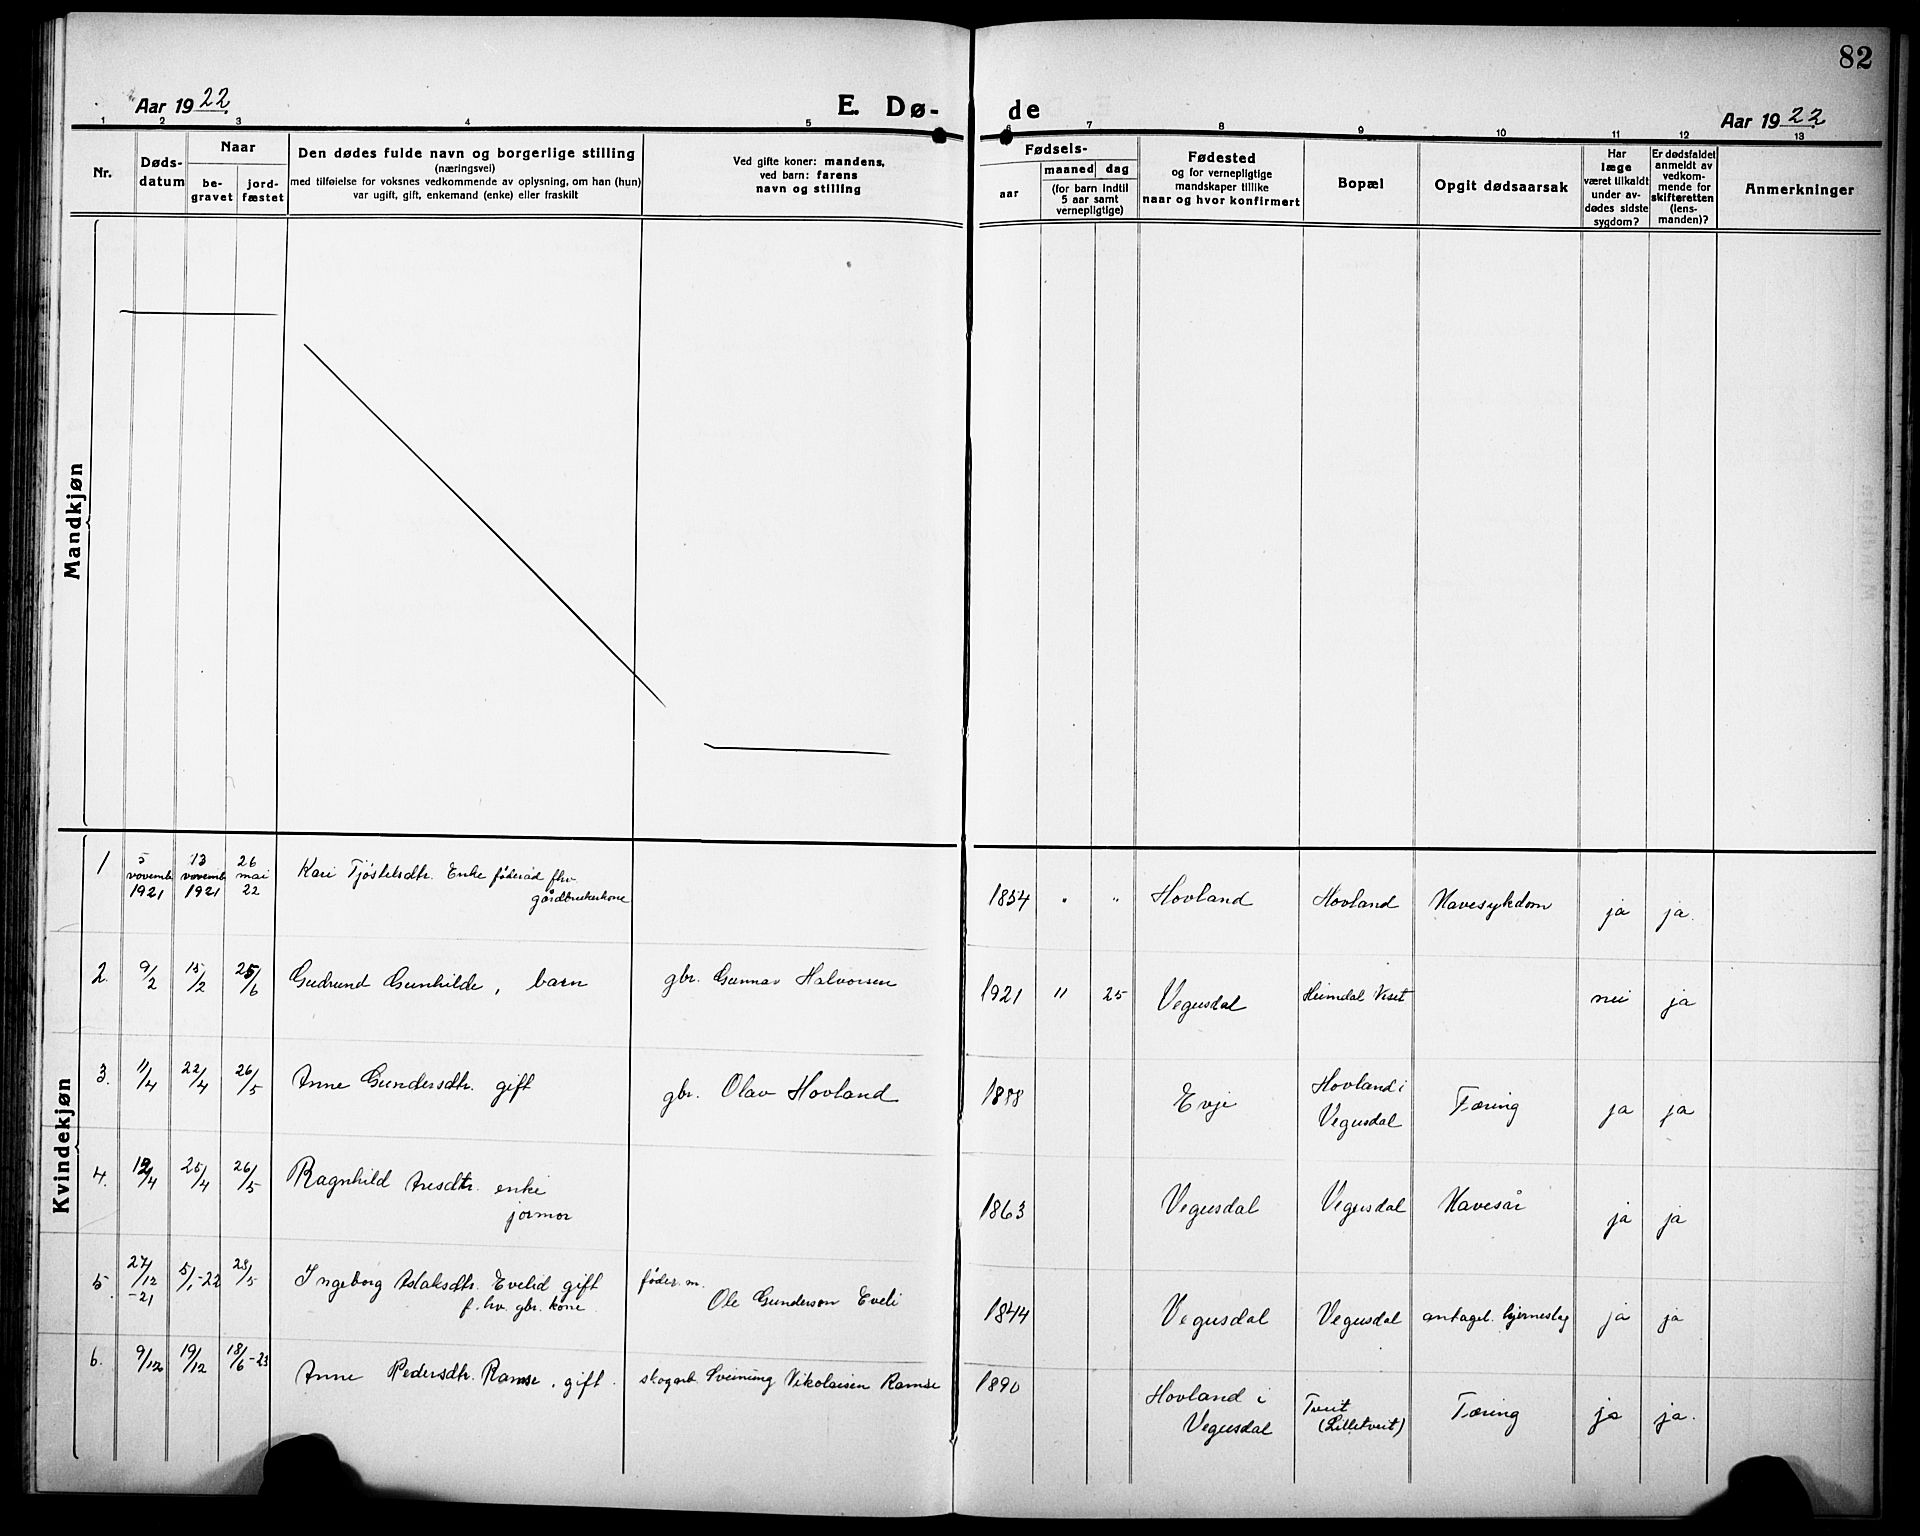 82
Aar 1922
E. Dø-
de
Aar 1922
1 2 3 4 5 6 7 8 9 10 11 12 13
Nr.
Døds-
datum
Naar
be-
gravet
jord-
fæstet
Den dødes fulde navn og borgerlige stilling
(næringsvei)
med tilføielse for voksnes vedkommende av oplysning, om han (hun)
var ugift, gift, enkemand (enke) eller fraskilt
Ved gifte koner: mandens,
ved barn: farens
navn og stilling
Fødsels-
aar
maaned dag
(for barn indtil
5 aar samt
vernepligtige)
Fødested
og for vernepligtige
mandskaper tillike
naar og hvor konfirmert
Bopæl
Opgit dødsaarsak
Har
læge
været tilkaldt
under av-
dødes sidste
sygdom?
Er dødsfaldet
anmeldt av
vedkom-
mende for
skifteretten
(lens-
manden)?
Anmerkninger
Mandkjøn
Kvindekjøn
1 5 novemb. 1921 13 novemb. 1921 26 mai 22 Kari Enke føderåd fhv.
gårdbrukerkone
1854 " " Hovland Hovland Mavesykdom ja ja.
2. 9/2 15/2 25/6 Gudrund Gunhilde, barn gbr. Gunnar Halvorsen 1921 11 25 Vegusdal Heimdal nei ja
3. 11/4 22/4 26/5 Anne Gundersdtr. gift gbr. Olav Hovland 1888 Evje Hovland i
Vegusdal Tæring ja ja
4. 12/4 25/4 26/5 Ragnhild Aresdtr. enke
jormor
1863 Vegusdal Vegusdal Mavesår ja ja
5. 27/12 -21 5/1-22 23/5 Ingeborg Aslaksdtr. Evelid gift
f. hv. gbr. kone
føder. m.
Ole Gunderson Eveli
1844 Vegusdal Vegusdal antagel. hjerneslag ja ja
6. 9/12 19/12 18/6-23 Anne Pedersdtr. Ramse, gift. skogarb. Sveinung Nikolaisen Ramse 1890 Hovland i
Vegusdal
Tveit
(Lilletveit)
Tæring ja ja.